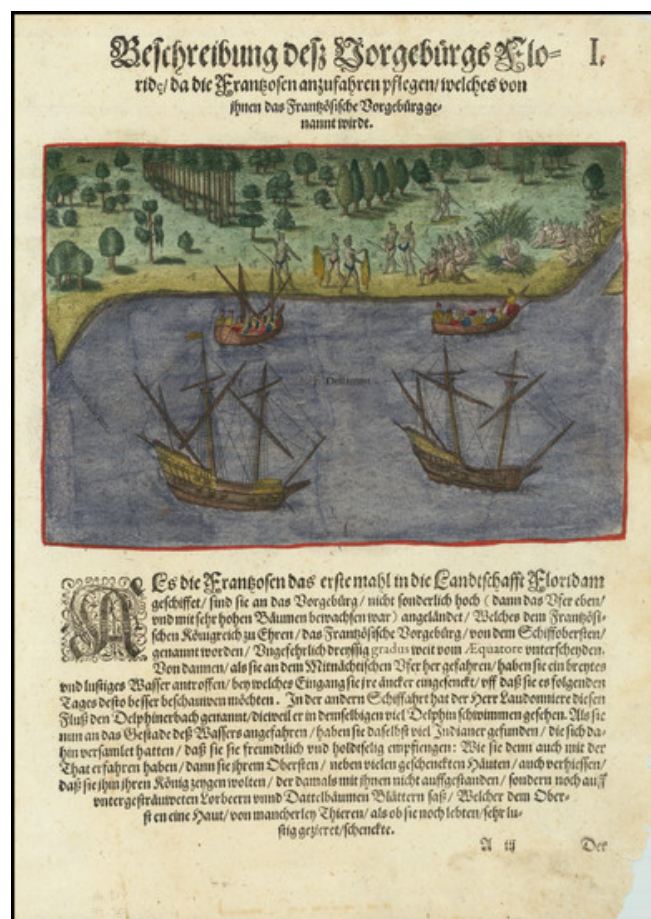 Beſchreibung deſz Vorgebürgs Flo= I.
ridę/ da die Frantzoſen anzufahren pflegen/ welches von
jhnen das Frantzöſiſche Vorgebürg ge-
nannt wirdt.
ALs die Frantzoſen das erſte mahl in die Landtſchafft Floridam
geſchiffet/ ſind ſie an das Vorgebürg/ nicht ſonderlich hoch (dann das Vfer eben/
vnd mit ſehr hohen Bäumen bewachſen war) angeländet/ Welches dem Frantzöſi-
ſchen Königreich zu Ehren/ das Frantzöſiſche Vorgebürg/ von dem Schiffoberſten/
genannt worden/ Vngefehrlich dreyſſig gradus weit vom Æquatore vnterſcheyden.
Von dannen/ als ſie an dem Mitnächtiſchen Vfer her gefahren/ haben ſie ein breytes
vnd luſtiges Waſſer antroffen/ bey welches Eingang ſie jre äncker eingeſenckt/ vff daß ſie es folgenden
Tages deſto beſſer beſchauwen möchten. In der andern Schiffahrt hat der Herr Laudonniere dieſen
Fluß den Delphinerbach genannt/ dieweil er in demſelbigen viel Delphin ſchwimmen geſehen. Als ſie
nun an das Geſtade deß Waſſers angefahren/ haben ſie daſelbſt viel Indianer gefunden/ die ſich da-
hin verſamlet hatten/ daß ſie ſie freundtlich vnd holdtſelig empfiengen: Wie ſie denn auch mit der
That erfahren haben/ dann ſie jhrem Oberſten/ neben vielen geſchenckten Häuten/ auch verhieſſen/
daß ſie jhm jhren König zeygen wolten/ der damals mit jhnen nicht auffgeſtanden/ ſondern noch auff
vntergeſträuweten Lorbeern vnnd Dattelbäumen Blättern ſaß/ Welcher dem Ober-
ſten eine Haut/ von mancherley Thieren/ als ob ſie noch lebten/ ſehr lu-
ſtig gezieret/ ſchenckte.
A iij Der